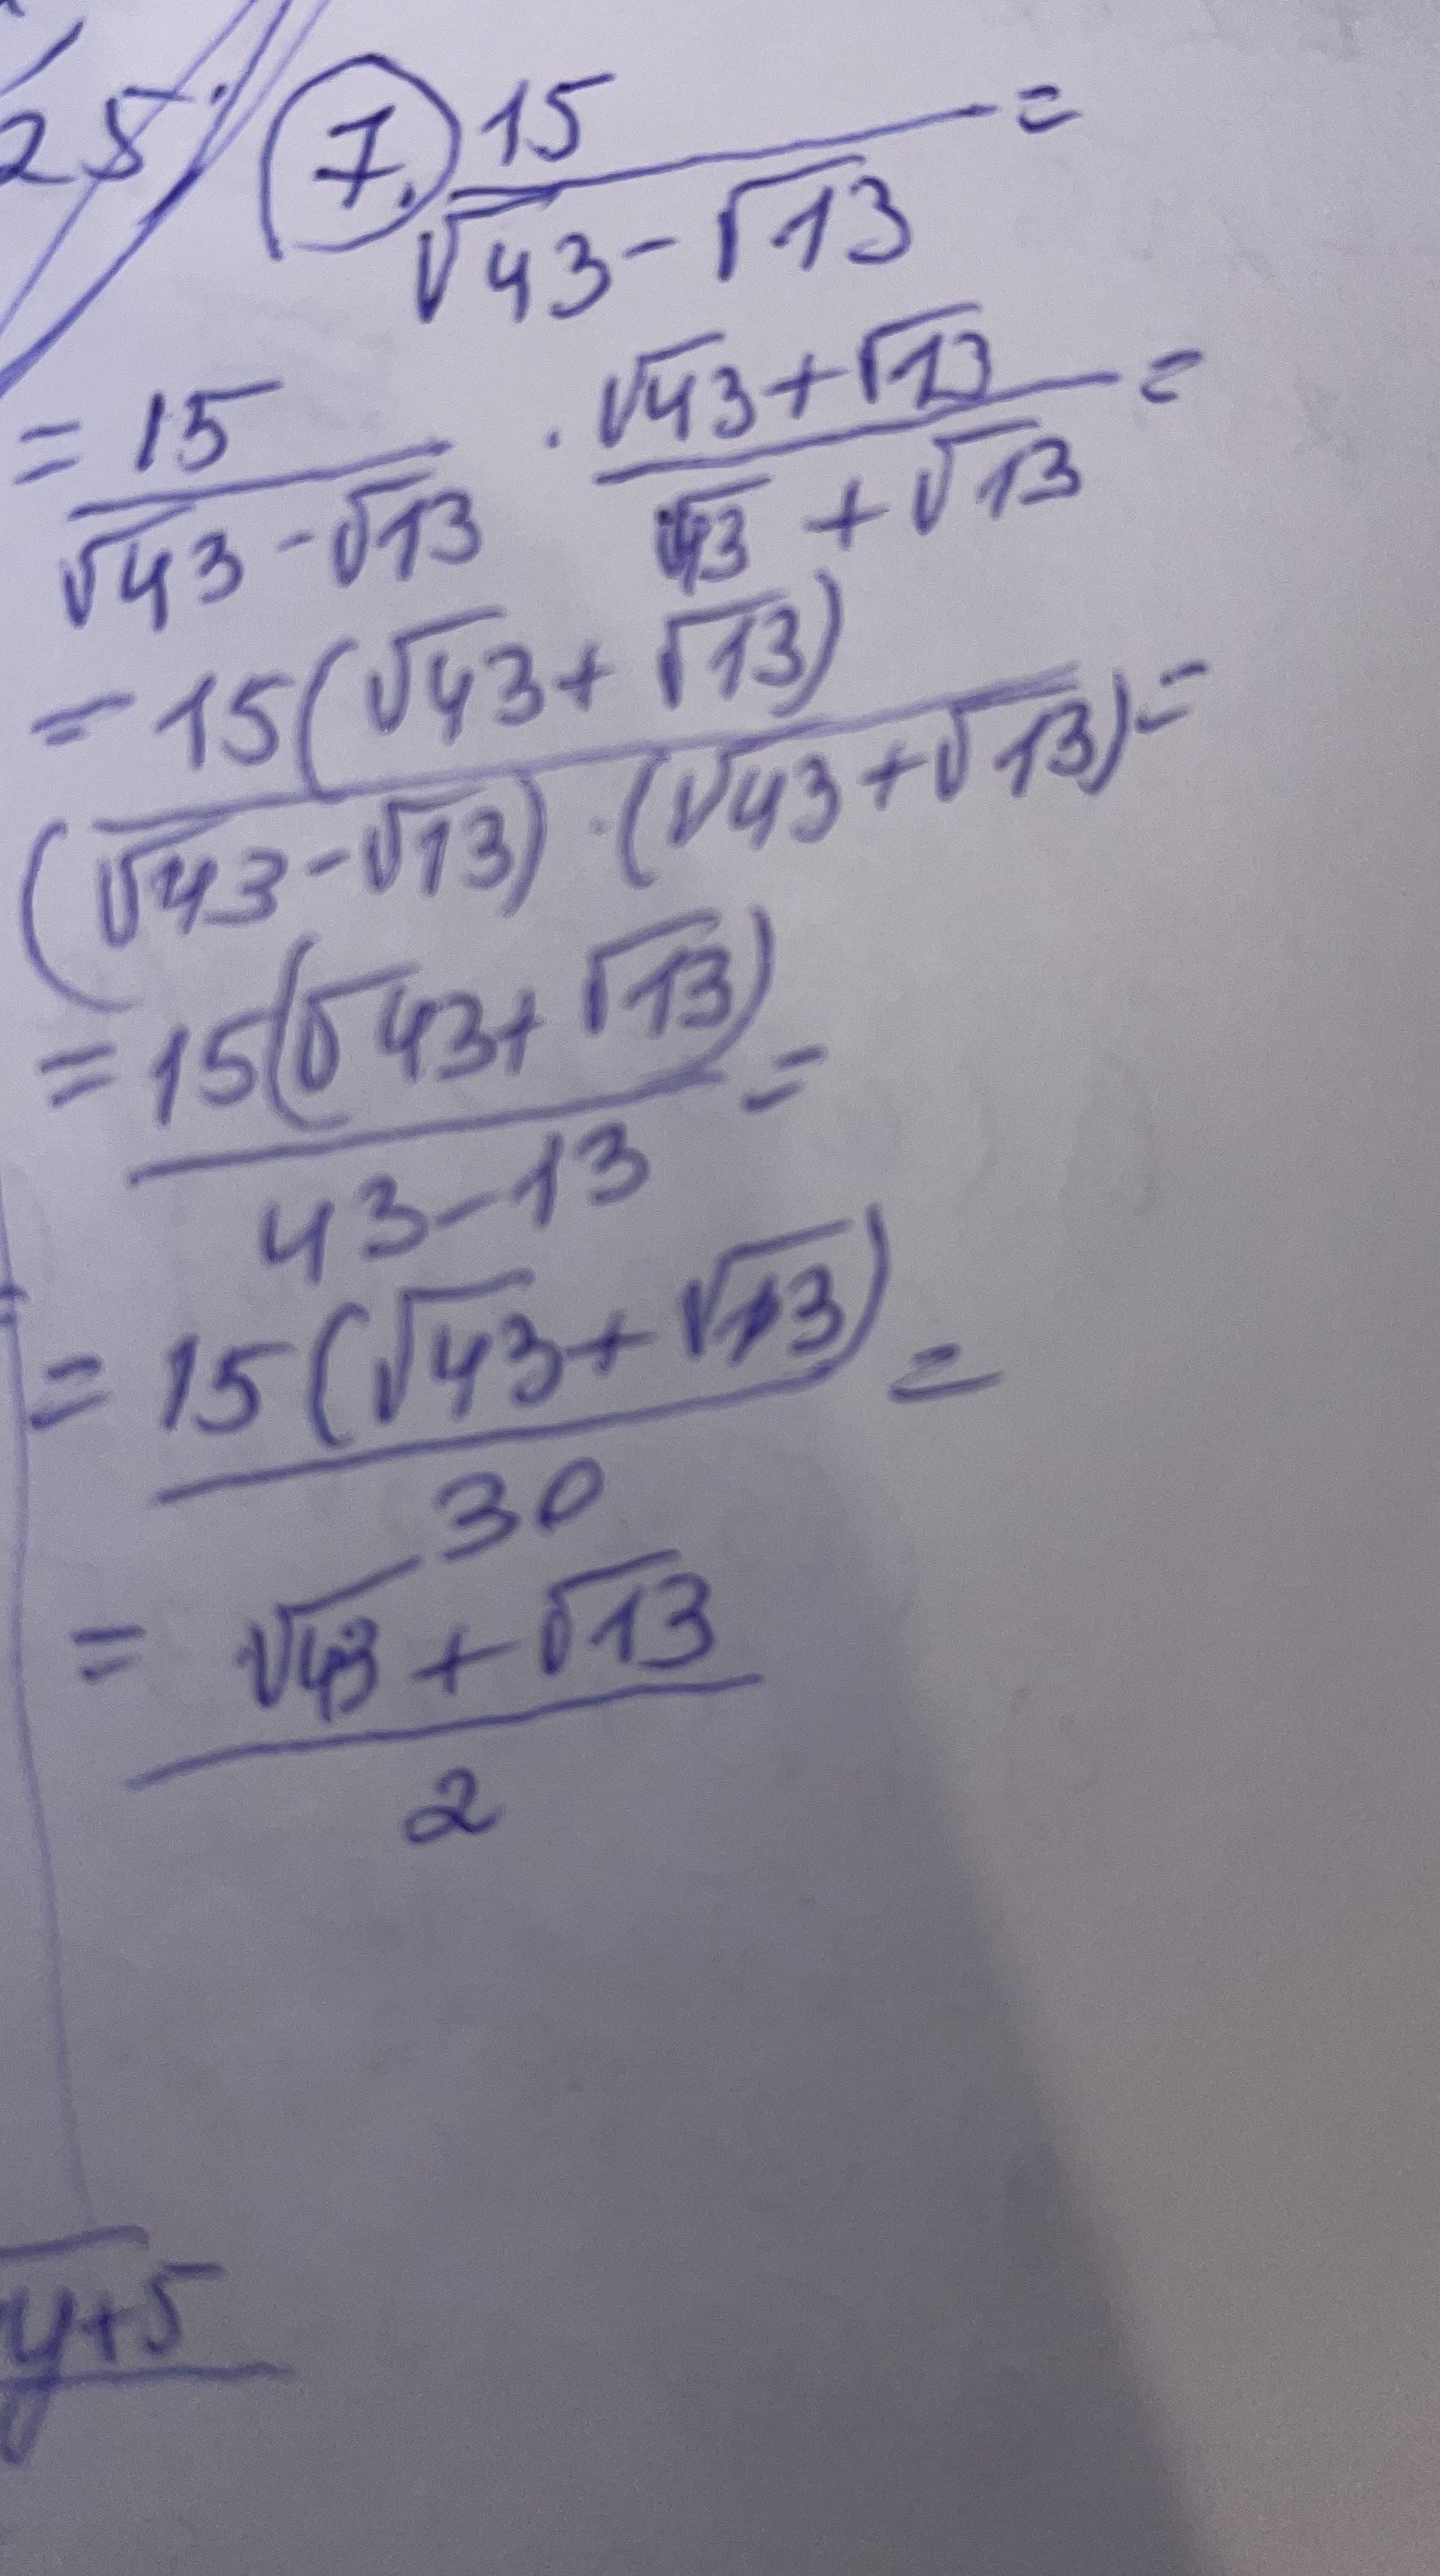 25
7. 15/(√43-√13) =
= 15/(√43-√13) · (√43+√13)/(√43+√13) =
= 15(√43+√13)/((√43-√13)·(√43+√13)) =
= 15(√43+√13)/(43-13) =
= 15(√43+√13)/30 =
= (√43+√13)/2
y+5